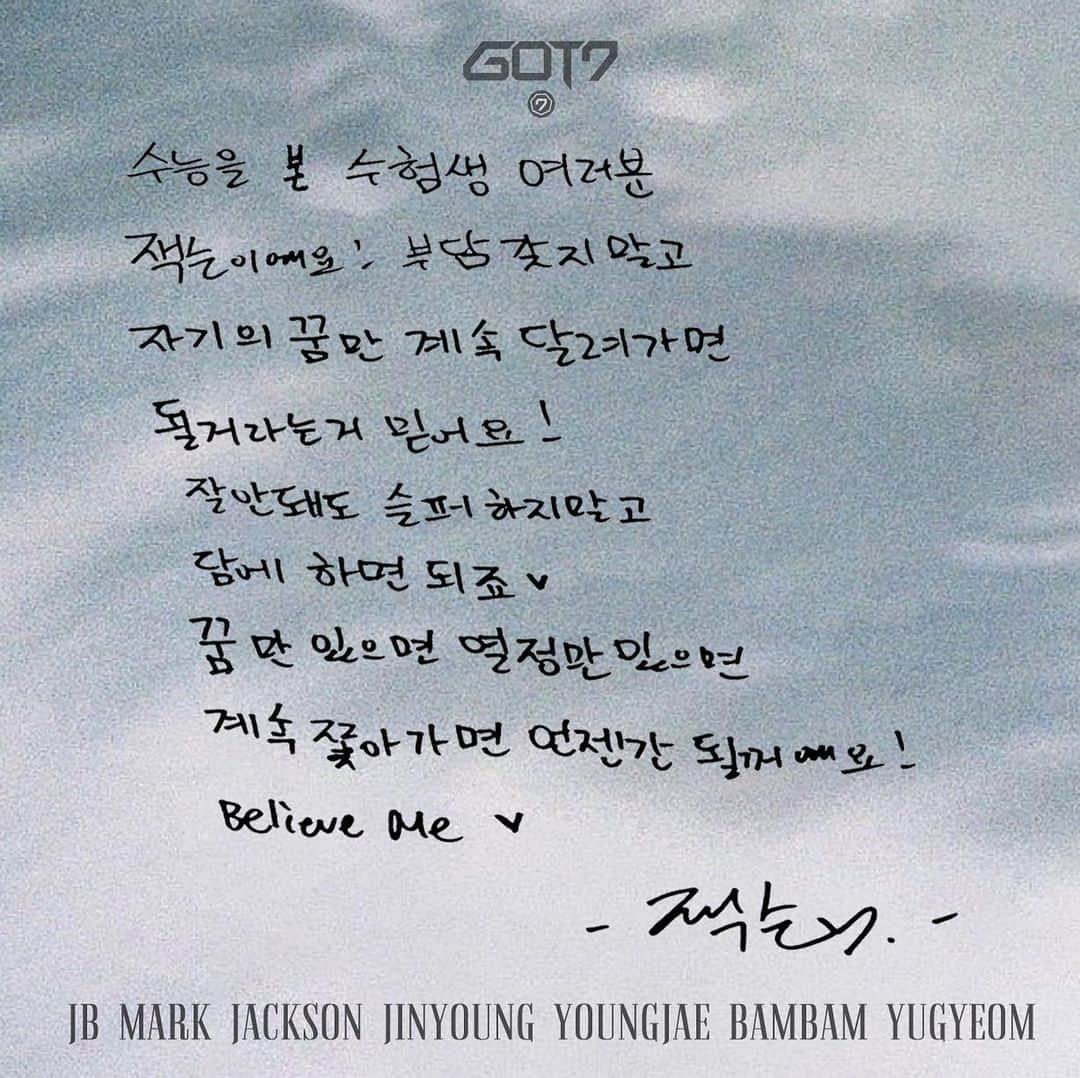 GOT7
7
수능을 본 수험생 여러분
잭슨이에요! 부담 갖지 말고
자기의 꿈만 계속 달려가면
될거라는거 믿어요!
잘안돼도 슬퍼하지말고
담에 하면 되죠 ♥
꿈만 있으면 열정만있으면
계속 쫓아가면 언젠간 될꺼에요!
Believe Me ♥
- 잭슨. -
JB MARK JACKSON JINYOUNG YOUNGJAE BAMBAM YUGYEOM